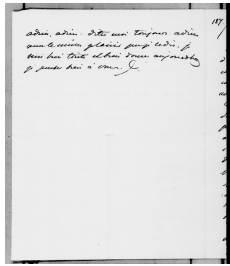 187
adieu, adieu. dites moi toujours adieu
avec le même plaisir que je le dis. je
suis bien triste et bien douce aujourd'hui
je pense bien à vous.